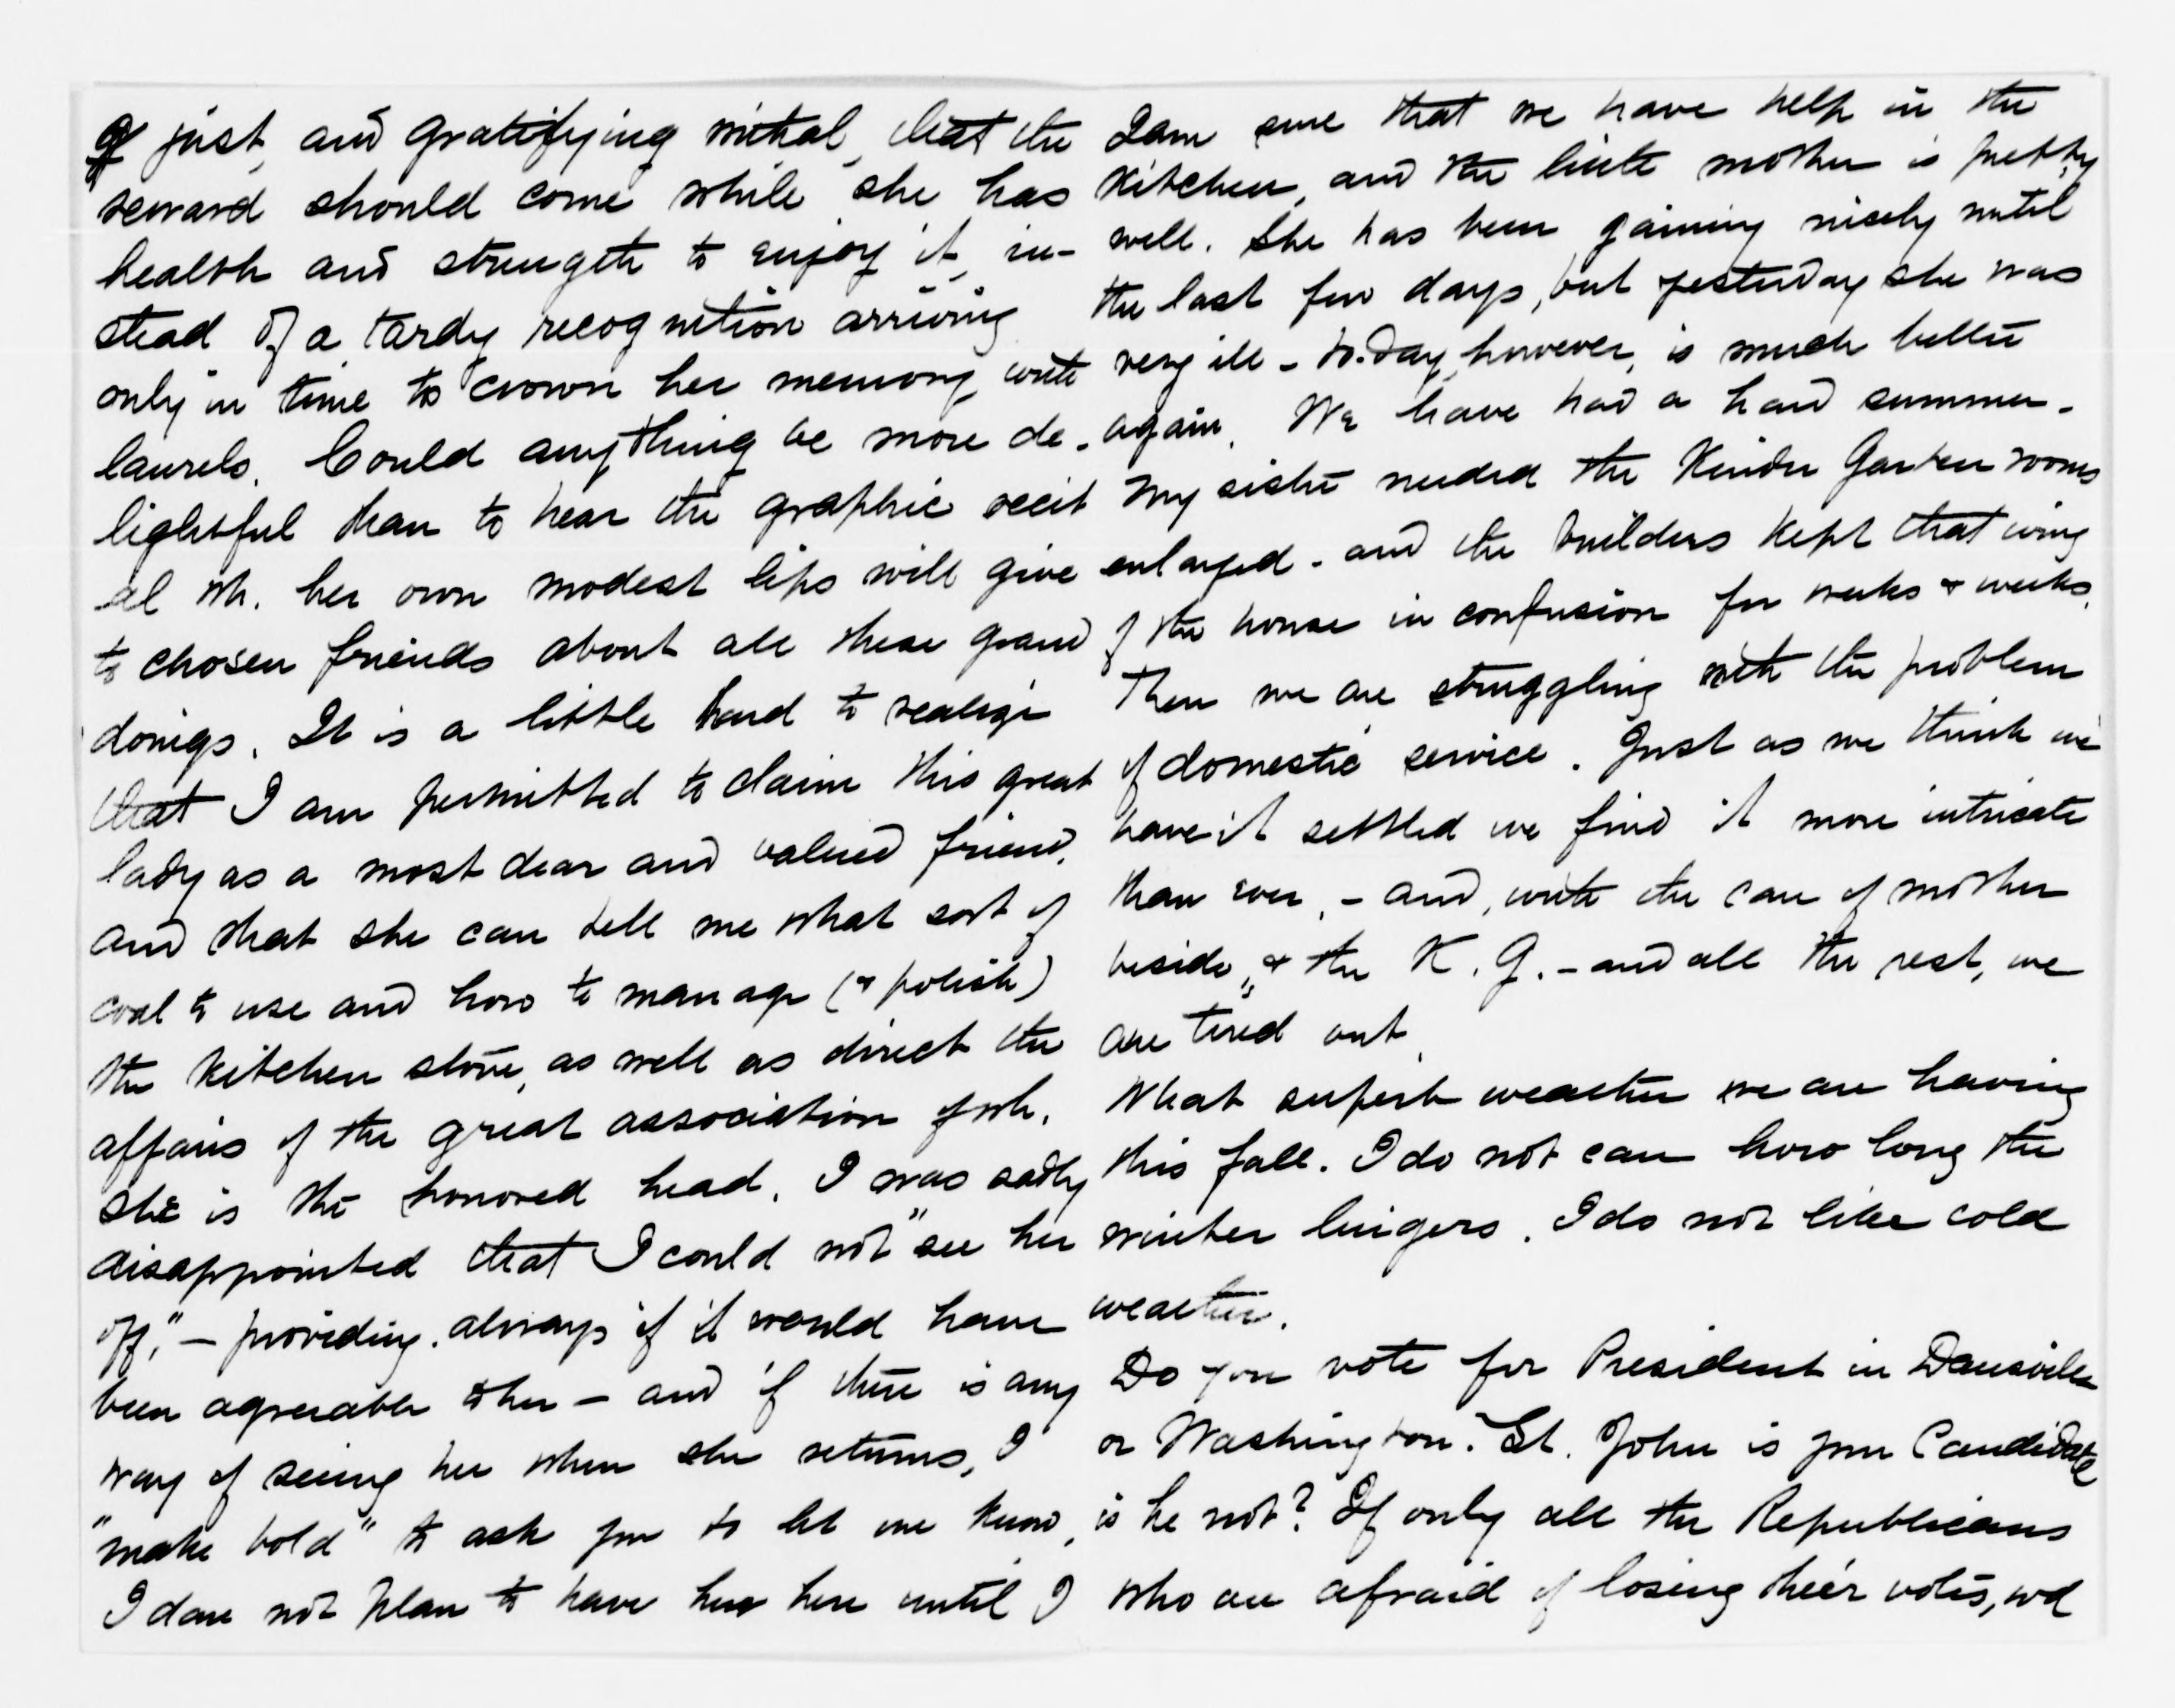 of just, and gratifying withal, that the
reward should come while she has
health and strength to enjoy it, in-
stead of a tardy recognition arriving
only in time to crown her memory with
laurels. Could anything be more de-
lightful than to hear the graphic recit
al wh. her own modest lips will give
to chosen friends about all these grand
doings. It is a little hard to realize
that I am permitted to claim this great
lady as a most dear and valued friend,
and that she can tell me what sort of
coal to use and how to manage (& polish)
the kitchen stove, as well as direct the
affairs of the great association of wh.
she is the honored head. I was sadly
disappointed that I could not "see her
off," – providing. always if it would have
been agreeable to her – and if there is any
way of seeing her when she returns, I
"make bold" to ask you to let me know,
I dare not plan to have her here until I
I am sure that we have help in the
Kitchen, and the little mother is pretty
well. She has been gaining nicely until
the last few days, but yesterday she was
very ill – to-day, however, is much better
again. We have had a hard summer.
My sister needed the Kinder Garten rooms
enlarged - and the builders kept that wing
of the house in confusion for weeks & weeks.
Then we are struggling with the problem
of domestic service. Just as we think we
have it settled we find it more intricate
than ever, – and, with the care of mother
beside, & the K. G. – and all the rest, we
are tired out.
What superb weather we are having
this fall. I do not care how long the
winter lingers. I do not like cold
weather.
Do you vote for President in Dansville
or Washington. St. John is your Candidate
is he not? If only all the Republicans
who are afraid of losing their votes, wd